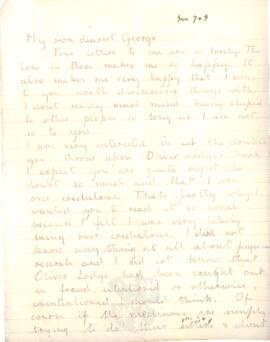 Jan 7 & 9
My own dearest George
Your letters to me are so lovely. The
love in them makes me so happy. It
also makes me very happy that I am,
to you, worth discussing things with.
I dont really much mind being stupid
to other people so long as I am not
so to you.
I am very interested in all the doubts
you throws upon Oliver Lodges book
I expect you are quite right to
doubt so much and that I am
over credulous. Thats partly why I
wanted you to read it so much
because I felt I was very likely
being over credulous. I did not
know any thing at all about
research and I did not know that
Oliver Lodge had been caught out
in fraud, intentional or otherwise,
unintentional I should think. Of
course if the mediums are simply
trying to do their &